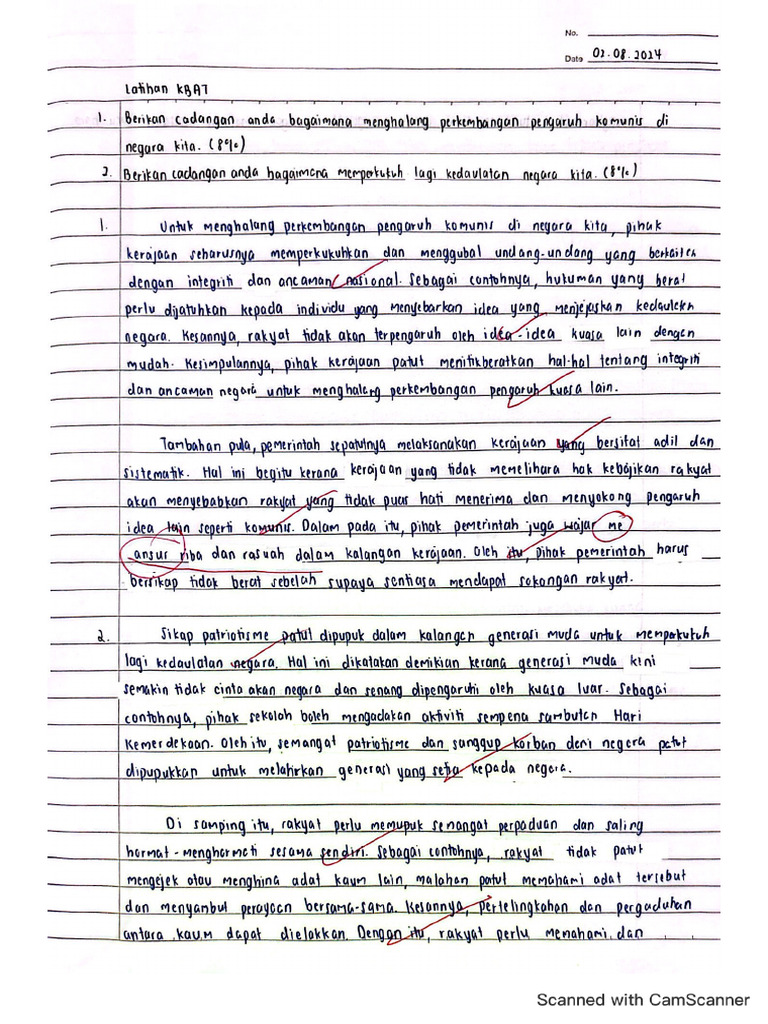 No.
Date 02.08.2024
Latihan KBAT
1. Berikan cadangan anda bagaimana menghalang perkembangan pengaruh komunis di
negara kita. (8%)
2. Berikan cadangan anda bagaimana memperkukuh lagi kedaulatan negara kita. (8%)
1. Untuk menghalang perkembangan pengaruh komunis di negara kita, pihak
kerajaan seharusnya memperkukuhkan dan menggubal undang-undang yang berkaitan
dengan integriti dan ancaman nasional. Sebagai contohnya, hukuman yang berat
perlu dijatuhkan kepada individu yang menyebarkan idea yang menjejaskan kedaulatan
negara. Kesannya, rakyat tidak akan terpengaruh oleh idea-idea kuasa lain dengan
mudah. Kesimpulannya, pihak kerajaan patut menitikberatkan hal-hal tentang integriti
dan ancaman negara untuk menghalang perkembangan pengaruh kuasa lain.
Tambahan pula, pemerintah sepatutnya melaksanakan kerajaan yang bersifat adil dan
sistematik. Hal ini begitu kerana kerajaan yang tidak memelihara hak kebajikan rakyat
akan menyebabkan rakyat yang tidak puas hati menerima dan menyokong pengaruh
idea lain seperti komunis. Dalam pada itu, pihak pemerintah juga wajar me
ansur riba dan rasuah dalam kalangan kerajaan. Oleh itu, pihak pemerintah harus
bersikap tidak berat sebelah supaya sentiasa mendapat sokongan rakyat.
2. Sikap patriotisme patut dipupuk dalam kalangan generasi muda untuk memperkukuh
lagi kedaulatan negara. Hal ini dikatakan demikian kerana generasi muda kini
semakin tidak cinta akan negara dan senang dipengaruhi oleh kuasa luar. Sebagai
contohnya, pihak sekolah boleh mengadakan aktiviti sempena sambutan Hari
Kemerdekaan. Oleh itu, semangat patriotisme dan sanggup korban demi negara patut
dipupukkan untuk melahirkan generasi yang setia kepada negara.
Di samping itu, rakyat perlu memupuk semangat perpaduan dan saling
hormat-menghormati sesama sendiri. Sebagai contohnya, rakyat tidak patut
mengejek atau menghina adat kaum lain, malahan patut memahami adat tersebut
dan menyambut perayaan bersama-sama. Kesannya, pertelingkahan dan pergaduhan
antara kaum dapat dielakkan. Dengan itu, rakyat perlu memahami dan
Scanned with CamScanner